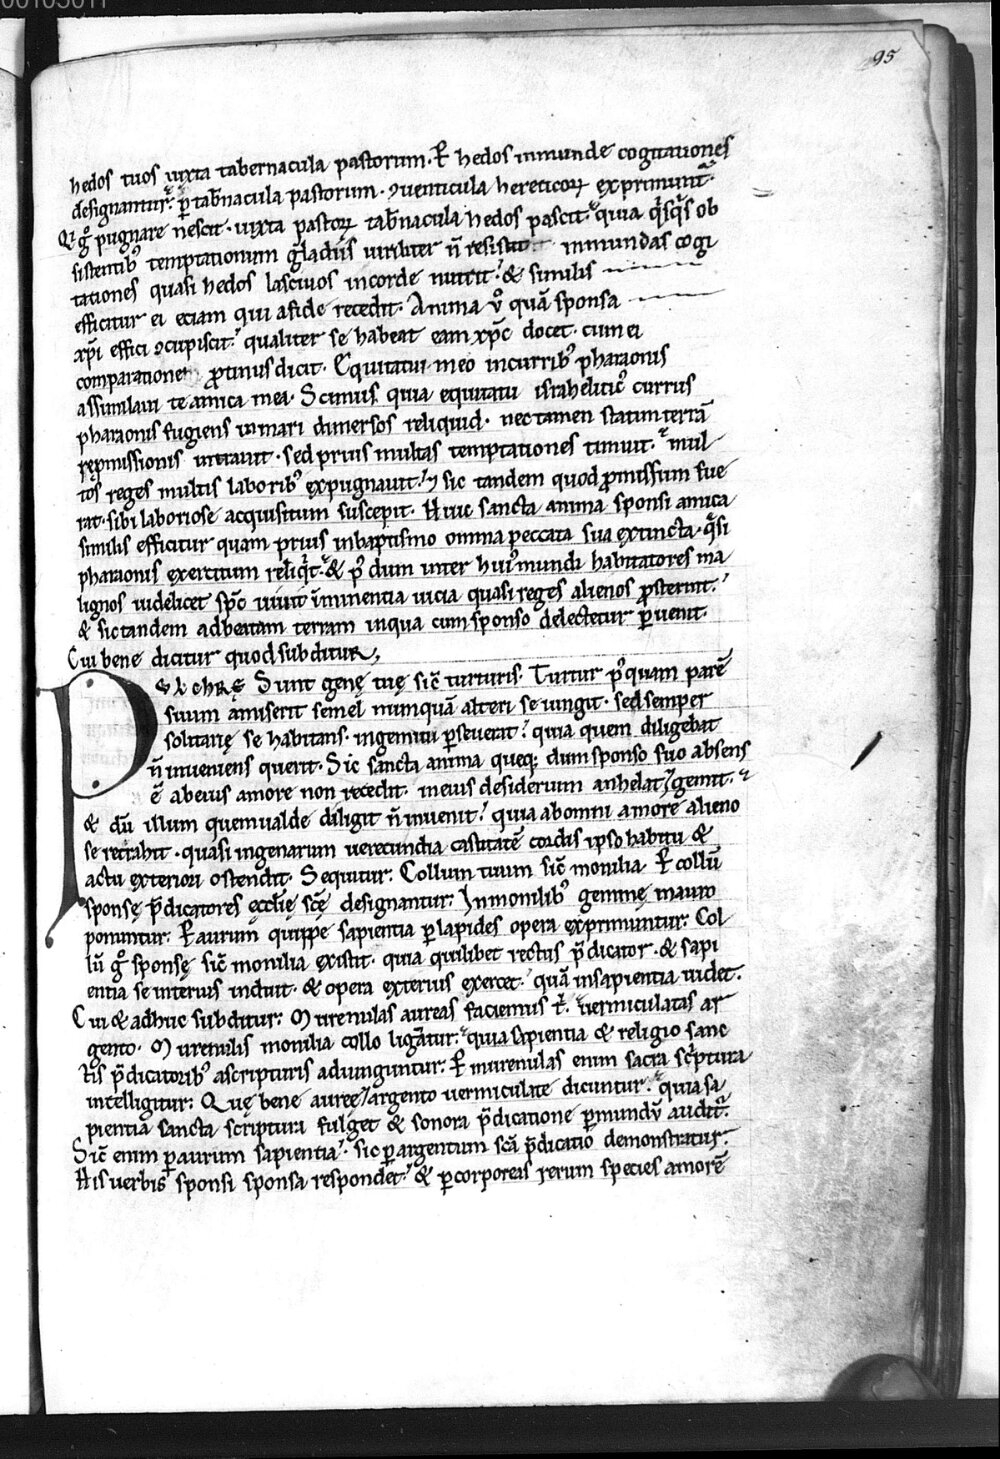 00103011
95
hedos tuos iuxta tabernacula pastorum. P̱ hedos inmunde cogitationes
designantur. ꝑ tab̄nacula pastorum. ꝯuenticula hereticoꝝ exprimunt̄.
Qi gͦ pugnare nescit. iuxta pastoꝝ tab̄nacula hedos pascit. quia qͥsqͥs ob
sistentibꝰ temptationum gladiis uiriliter n̄ resistit inmundas cogi
tationes quasi hedos lasciuos in corde nutrit. & similis
efficitur ei eciam qui a fide recedit. Anima ū quā sponsa
xp̄i effici ꝯcupiscit. qualiter se habeat eam xp̄c docet. cum ei
comparatione ꝓtinus dicit. Equitatui meo in curribꝰ pharaonis
assimilaui te amica mea. Scimus quia equitatu israheliticͦ currus
pharaonis fugiens in mari dimersos reliquid. nec tamen statim terrā
repmissionis intrauit. sed prius multas temptationes timuit. mul
tos reges multis laboribꝰ expugnauit. ⁊ sic tandem quod ꝓmissum fue
rat. sibi laboriose acquisitum suscepit. Huic sancta anima sponsi amica
similis efficitur quam prius in baptismo omnia peccata sua extincta. qͣsi
pharaonis exercitum relīqͥt. & pͦ dum inter huiꝰ mundi habitatores ma
lignos uidelicet sp̄c uiuit īminentia uicia quasi reges alienos ꝓsternit.
& sic tandem ad beatam terram in qua cum sponso delectetur ꝑuenit.
Cui bene dicitur quod subditur,
PULCHRĘ Sunt genę tuę sic̄ turturis. Turtur pͦquam parē
suum amiserit semel numquā alteri se iungit. sed semper
solitarię se habitans. in gemitu ꝑseuerat. quia quem diligebat
n̄ inueniens querit. Sic sancta anima queqꝫ dum sponso suo absens
ē ab eius amore non recedit. in eius desiderium anhelat / gemit. ⁊
& dū illum quem ualde diligit n̄ inuenit. quia ab omni amore alieno
se retrahit. quasi in genarum uerecundia castitatē cordis ipso habitu &
actu exteriori ostendit. Sequitur. Collum tuum sic̄ monilia. P̱ collū
sponsę p̄dicatores ęcclię scę̄ designantur. In monilibꝰ gemmę in auro
ponuntur. P̱ aurum quippe sapientia ꝑ lapides opera exprimuntur. Col
lū gͦ sponsę sic̄ monilia existit. quia quilibet rectus p̄dicator. & sapi
entia se interius induit. & opera exterius exercet. quā in sapientia uidet.
Cui & adhuc subditur. Murenulas aureas faciemus t͛. uermiculatas ar
gento. Murenulis monilia collo ligāntur. quia sapientia & religio sanc
tis p̄dicatoribꝰ a scripturis adiunguntur. P̱ murenulas enim sacra sc̄ptura
intelligitur. Quę bene aureę / argento uermiculate dicuntur. quia sa
pientia sancta scriptura fulget & sonora p̄dicatione ꝑ mundū auditͬ.
Sic̄ enim ꝑ aurum sapientia. sic ꝑ argentum scā p̄dicatio demonstratur.
His uerbis sponsi sponsa respondet. & ꝑ corporeas rerum species amorē